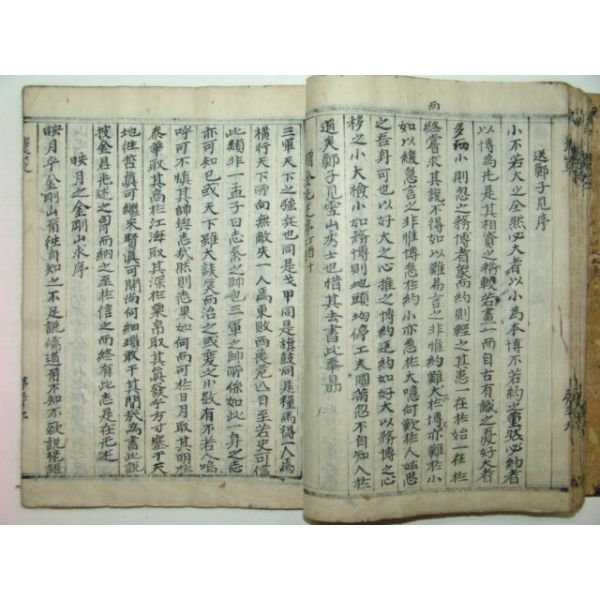 送鄭子見序
小不若大之全然必大者以小為本博不若約之重然必約者
以博為先是其相資之務較若畫一而自古有識之憂好大者
多而小則忽之務博者眾而約則輕之其患一在於始一在於
終嘗求其說不得如以難易言之非惟約難大於博亦難於小
如以緩急言之非惟博急於約小亦急於大噫何歎於人姑思
之吾身可也以好大之心推之博約速約如好大以務博之心
移之小大檢小如務博則地頭均停工夫圓滿忽不自知入於
道矣鄭子見雪山秀士也惜其去書此奉勗
三軍天下之強兵也同是戈甲同是旗鼓同是糧馬得一人焉
橫行天下所向無敵失一人焉東敗西喪危亡日至若史可信
此類非一孟子曰志氣之帥也三軍之帥所係如此一身之志
亦可知已或天下雖大談笑而治之或變之小數有不若人鳴
呼可不慎其帥與志哉然則志果如何而可於日月取其明於
泰華取其高於江海取其深於粟帛取其真發乎方可塞于天
地往哲真可繼來賢真可開尚何細瑣敢干其間哉為書此說
於金君光述之胄而納之至於信之而終有此志是在光述
映月之金剛山求序
映月乎金剛山爾往自知之不足說儒道爾不知不欲說梵語